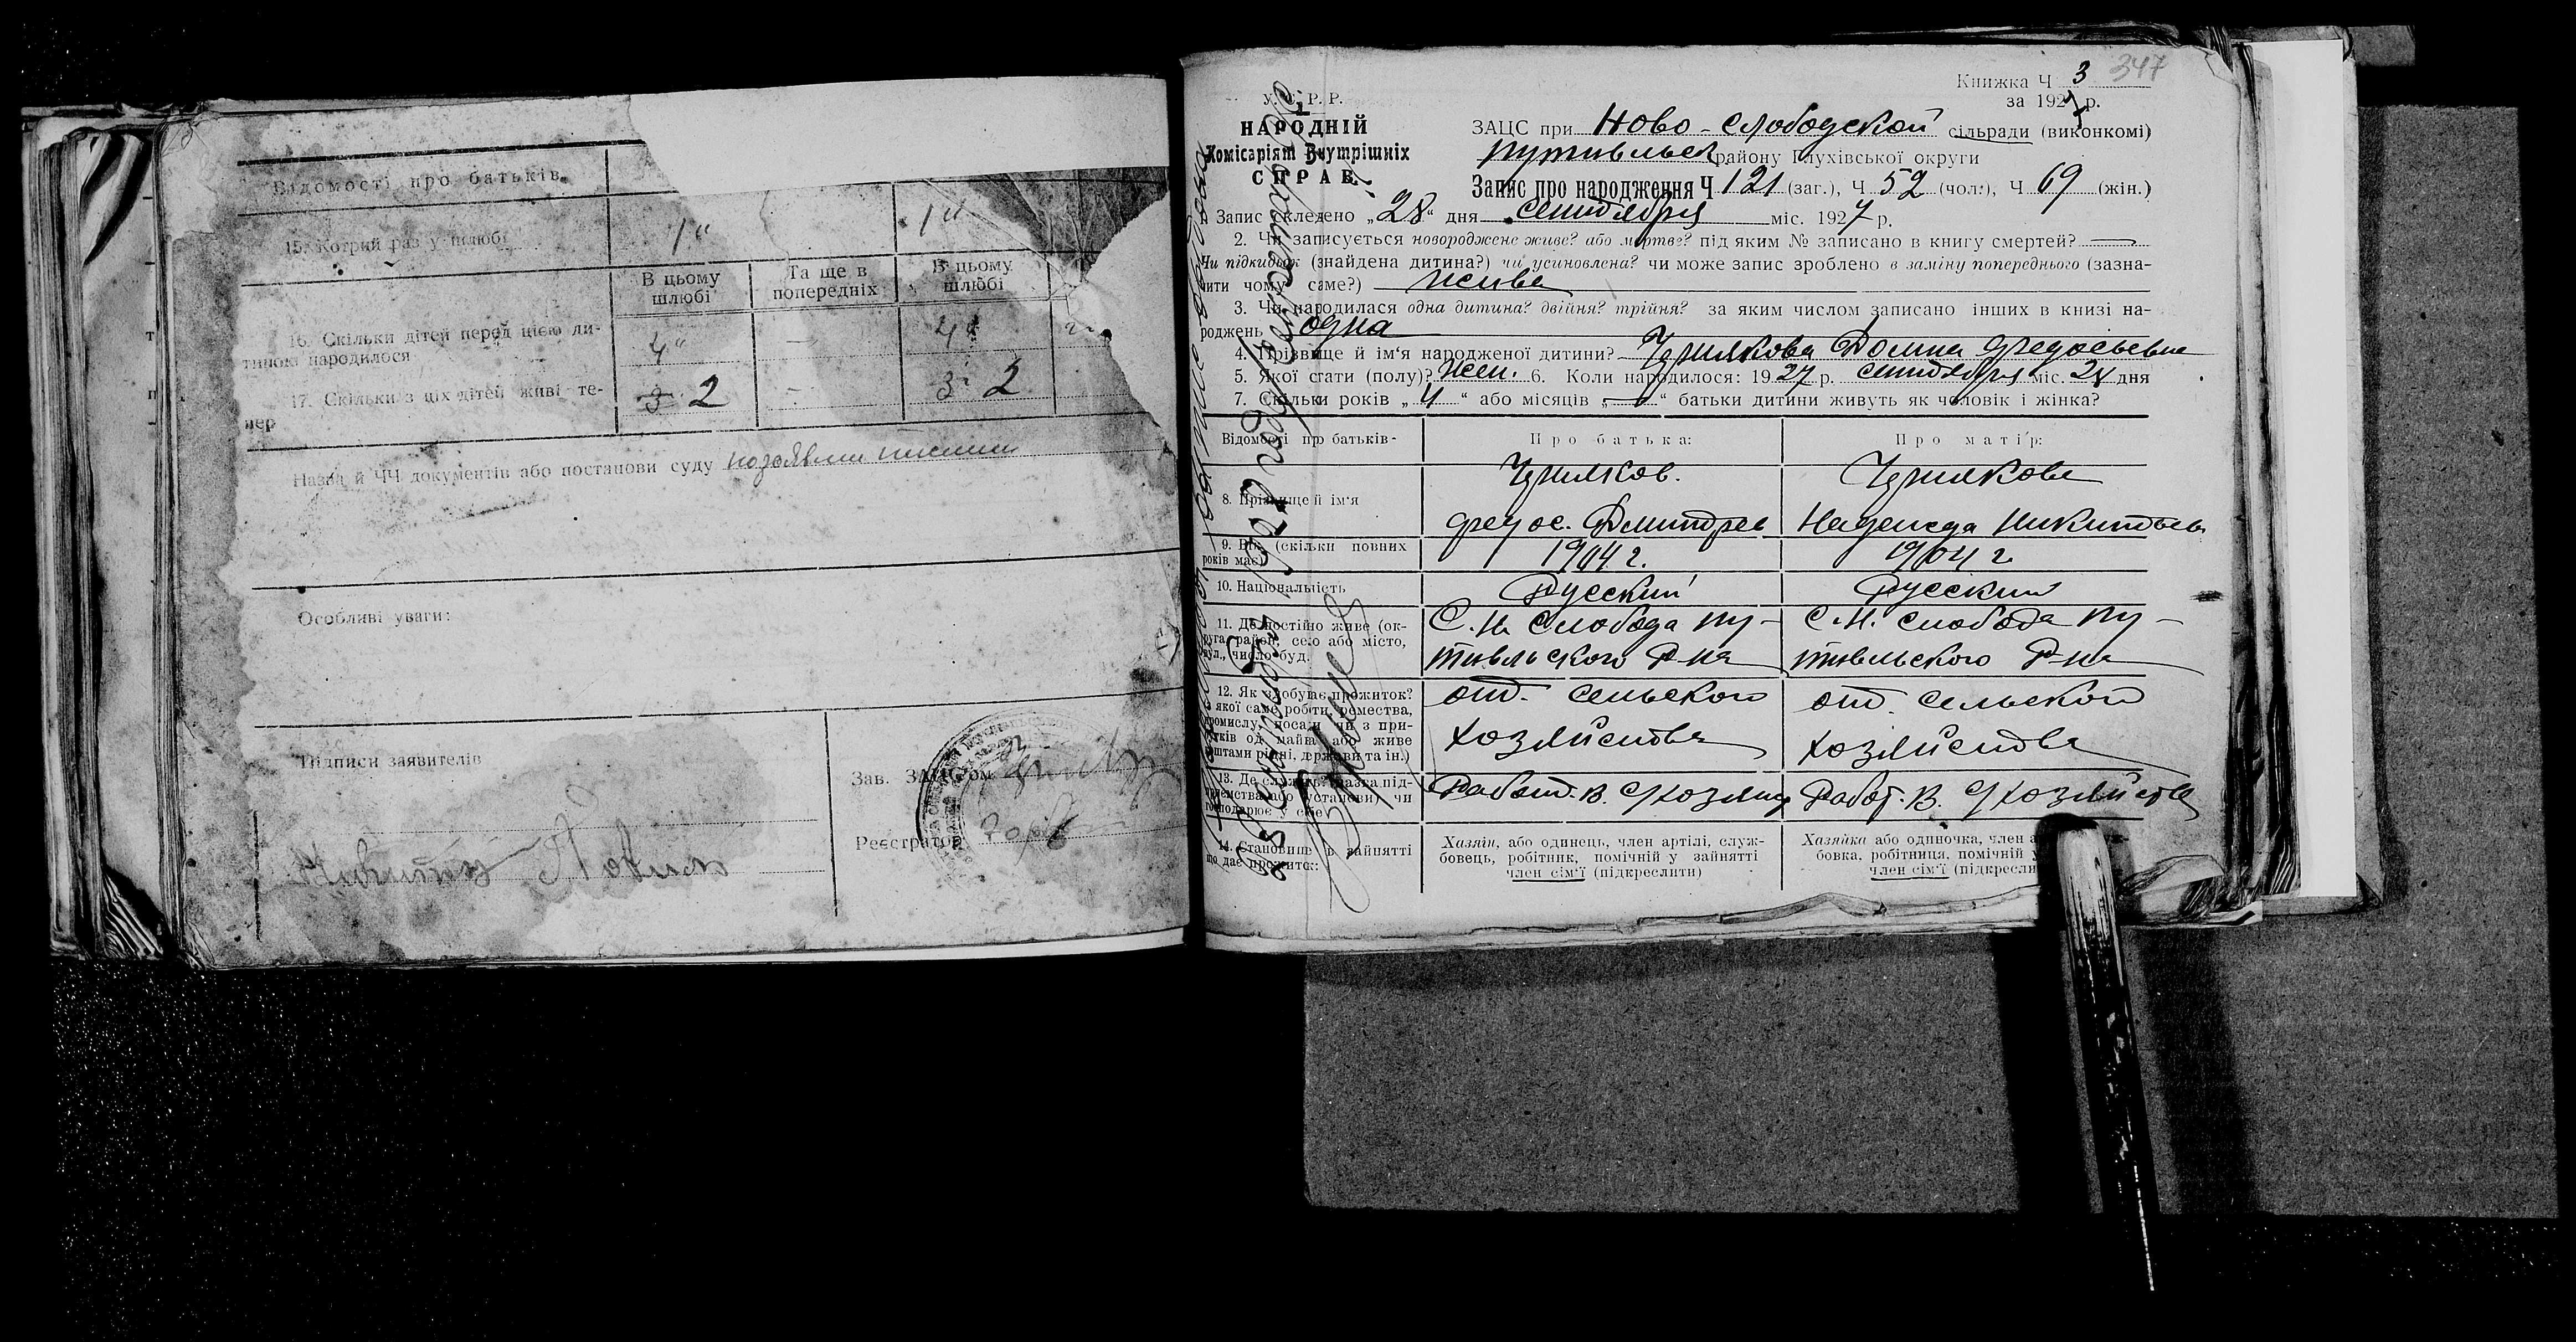 Відомості про батьків
15. Котрий раз у шлюбі 1" 1"
В цьому шлюбі
Та ще в попередніх
В цьому шлюбі
16. Скільки дітей перед цією ди-
тиною народилося 4" - 4"
17. Скільки з ціх дітей живі те-
пер 3 2 - 3 2
Назва й ЧЧ документів або постанови суду
Особливі уваги:
Підписи заявителів
Зав. ЗАЦСом
Реєстратор
347
Книжка Ч 3
за 1927 р.
У. С. Р. Р.
НАРОДНІЙ
Комісаріят Внутрішніх
СПРАВ
ЗАЦС при Ново-Слободской сільради (виконкомі)
Путивльск району Глухівської округи
Запис про народження Ч 121 (заг.), Ч 52 (чол.), Ч 69 (жін.)
Запис складено „28“ дня сентября міс. 1927 р.
2. Чи записується новороджене живе? або мертве? під яким № записано в книгу смертей? —
Чи підкидьок (знайдена дитина?) чи усиновлена? чи може запис зроблено в заміну попереднього (зазна-
чити чому саме?) жива
3. Чи народилася одна дитина? двійня? трійня? за яким числом записано інших в книзі на-
роджень одна
4. Прізвище й ім'я народженої дитини? Домна Федосьевна
5. Якої стати (полу)? Жен. 6. Коли народилося: 1927 р. сентября міс. 28 дня
7. Скільки років „4“ або місяців „—“ батьки дитини живуть як чоловік і жінка?
Відомості про батьків-
Про батька:
Про матір:
8. Прізвище й ім'я
Федос. Дмитрев
Надежда Никитовна
9. Вік (скільки повних
років має)
1904 г.
1904 г
10. Національність
Русский
Русский
11. Де постійно живе (ок-
руга, район, село або місто,
вул., число буд.
С. Н. Слобода Пу-
тивльского Р-на
С. Н. Слобода Пу-
тивельского Р-на
12. Як здобуває прожиток?
з якої саме робіти, ремества,
промислу, посади чи з при-
бутків од майна або живе
коштами рідні, держави та ін.)
от. сельского
хозяйства
от. сельского
хозяйства
13. Де служить? (назва під-
приємства або установи) чи
господарює у себе
Работ. в. с/хозяйс
Работ. в. с/хозяйства
14. Становище в зайнятті
що дає прожиток:
Хазяїн, або одинець, член артілі, служ-
бовець, робітник, помічній у зайнятті
член сім'ї (підкреслити)
Хазяйка або одиночка, член а
бовка, робітниця, помічній у
член сім'ї (підкресли